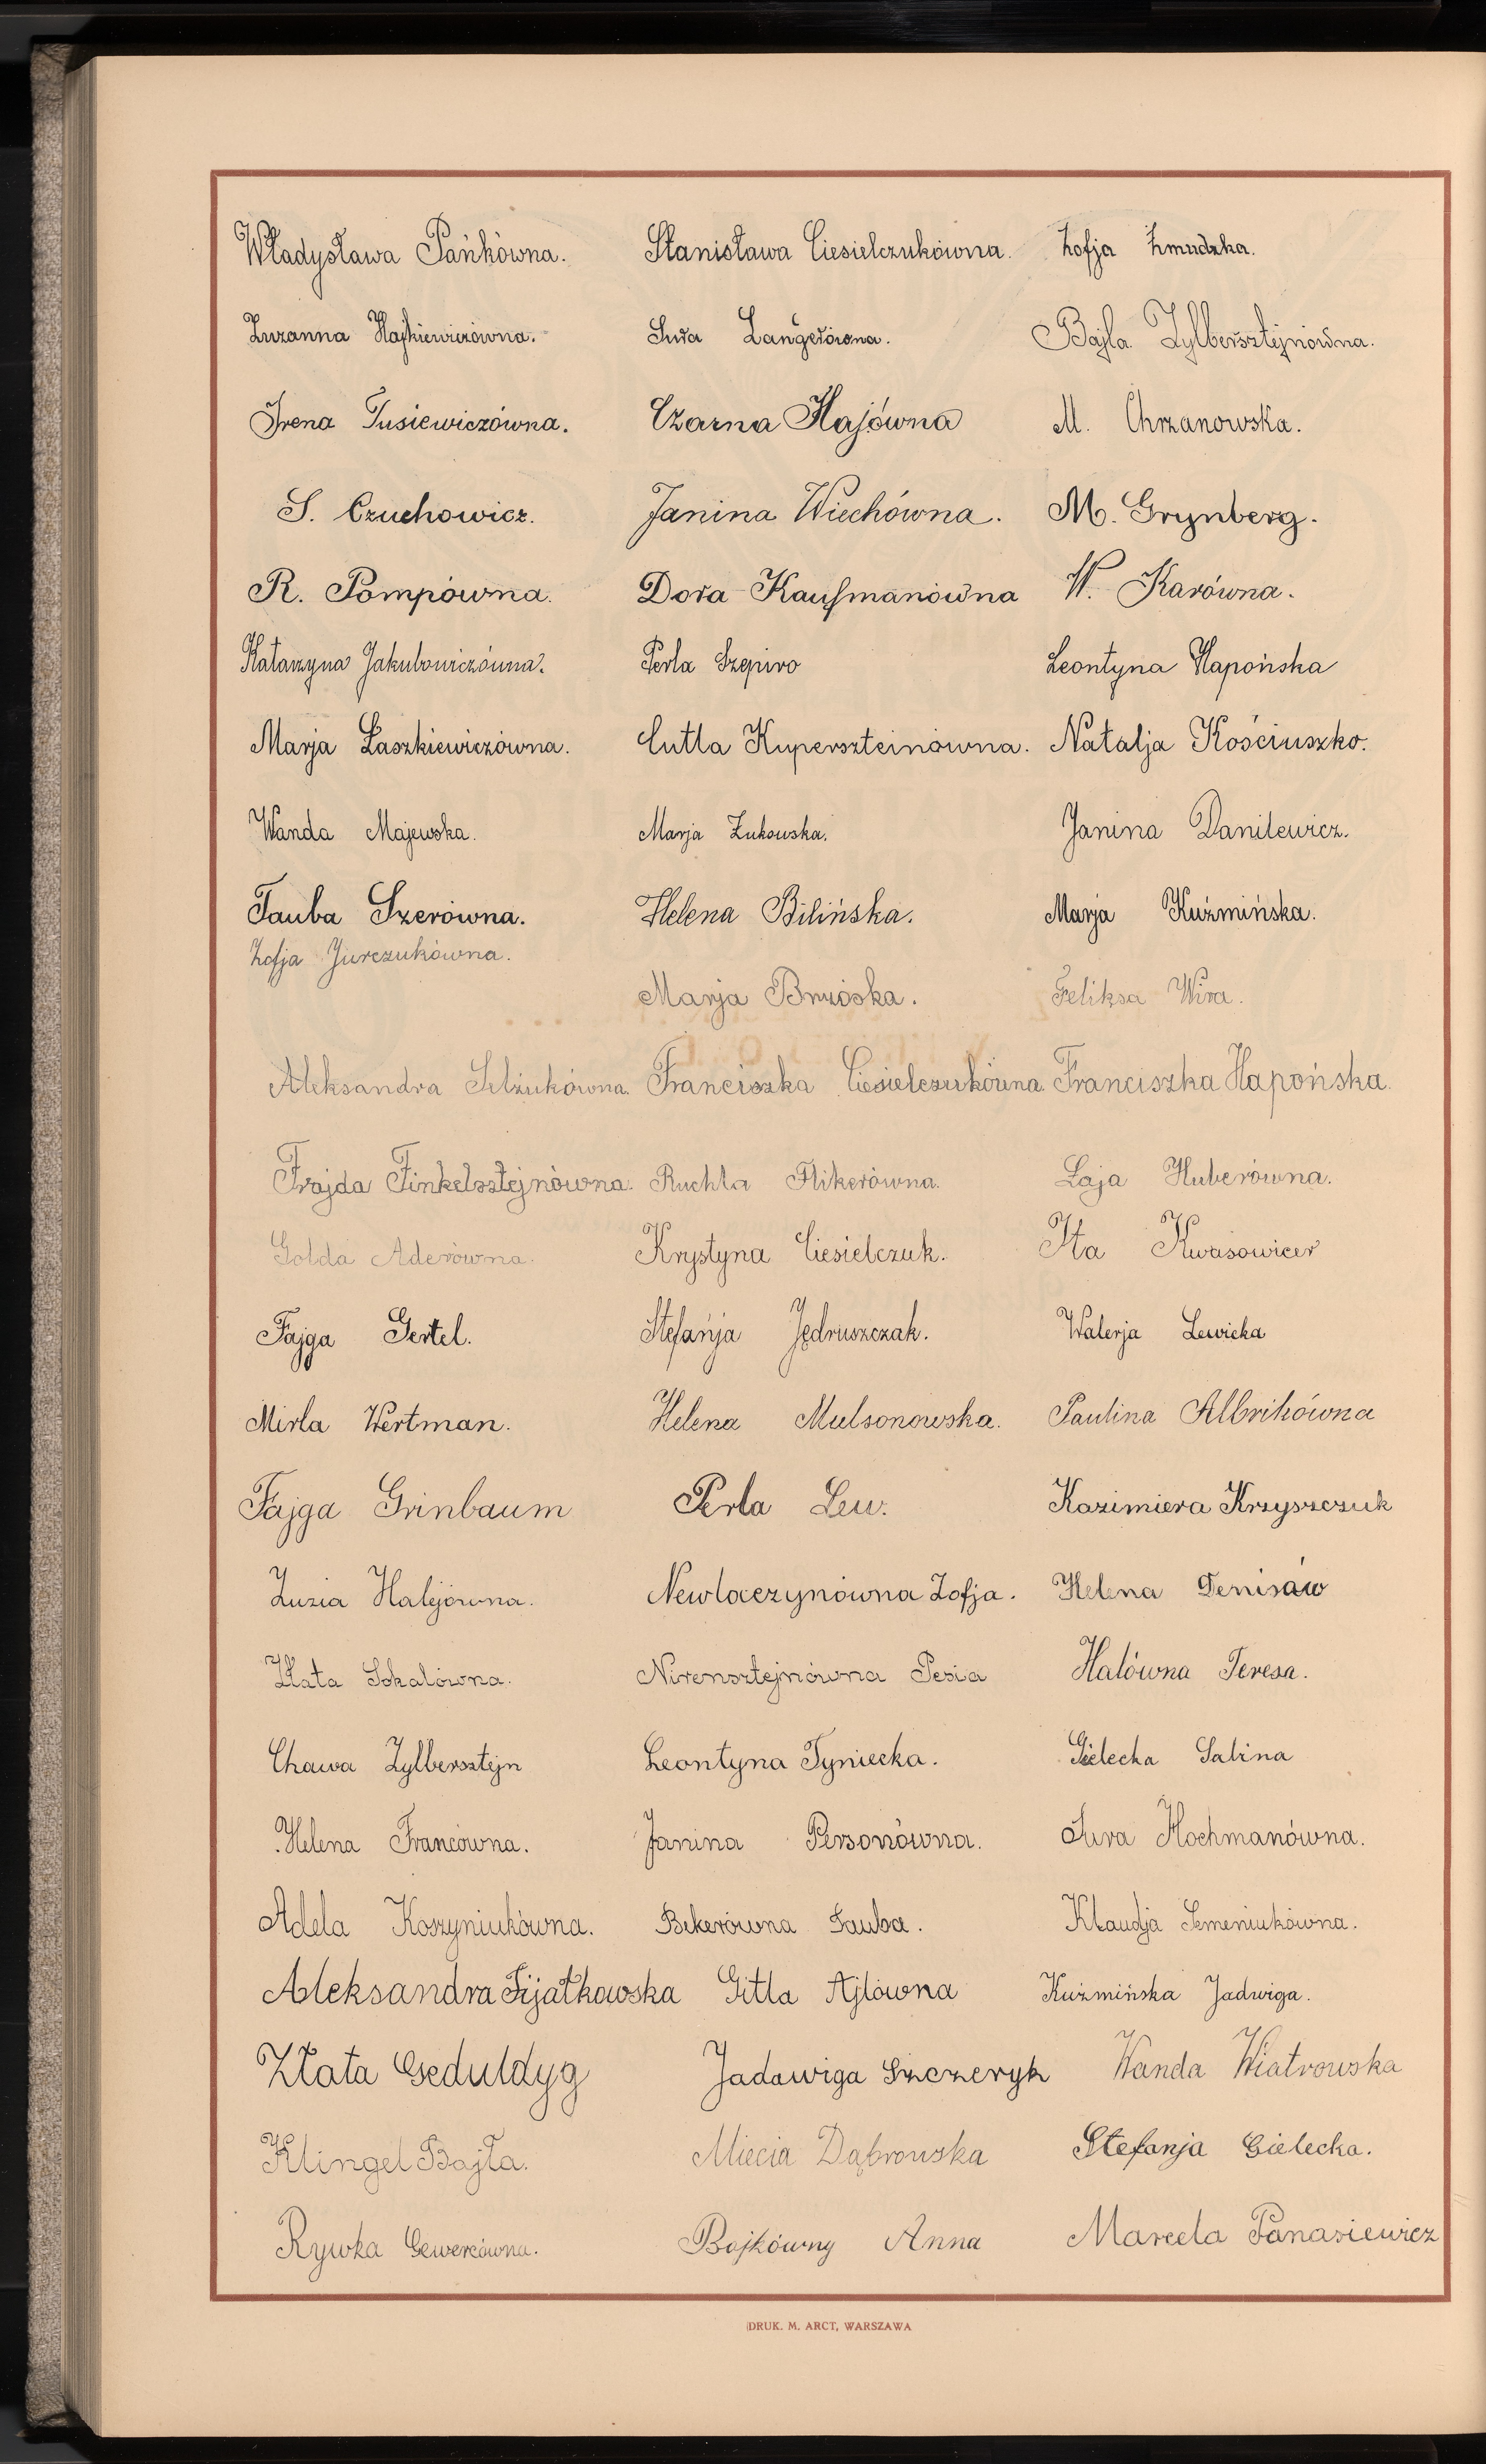 Władysława Pańkówna. Stanisława Ciesielczukówna. Zofja Żmudzka.
Zuzanna Hajkiewiczówna. Sura Langerówna. Bajla Zylbersztejnówna.
Irena Tusiewiczówna. Czarna Hajówna M. Chrzanowska.
S. Czuchowicz. Janina Wiechówna. M. Grynberg.
R. Pompówna. Dora Kaufmanówna W. Karówna.
Katarzyna Jakubowiczówna. Perla Szepiro Leontyna Hapońska
Marja Laszkiewiczówna. Cutla Kuperszteinówna. Natalja Kościuszko.
Wanda Majewska. Marja Żukowska. Janina Danilewicz.
Tauba Szerówna. Helena Bilińska. Marja Kuźmińska.
Zofja Jurczukówna.
Marja Brzóska. Feliksa Wira.
Aleksandra Franciszka Ciesielczukówna. Franciszka Hapońska.
Frajda Finkelsztejnówna. Ruchla Flikerówna. Łaja Huberówna.
Golda Aderówna. Krystyna Ciesielczuk. Ita Kwasowicer
Fajga Gertel. Stefanja Jędruszczak. Walerja Lewicka
Mirla Wertman. Helena Mulsonowska. Paulina Albrikówna
Fajga Grinbaum Perla Lew. Kazimiera Krzyszczuk
Zuzia Halejówna. Newloczynówna Zofja. Helena Denisów
Złata Sokalówna. Nirensztejnówna Pesia Halówna Teresa.
Chawa Zylbersztejn Leontyna Tyniecka. Gielecka Salina
Helena Francówna. Janina Personówna. Sura Hochmanówna.
Adela Koszyniukówna. Bekerówna Tauba. Klaudja Semeniukówna.
Aleksandra Fijałkowska Gitla Ajlówna Kuźmińska Jadwiga.
Złata Geduldyg Jadawiga Szczeryk Wanda Wiatrowska
Klingel Bajła. Miecia Dąbrowska Stefanja Gielecka.
Rywka Gewercówna. Bojkówny Anna Marcela Panasiewicz
DRUK. M. ARCT, WARSZAWA